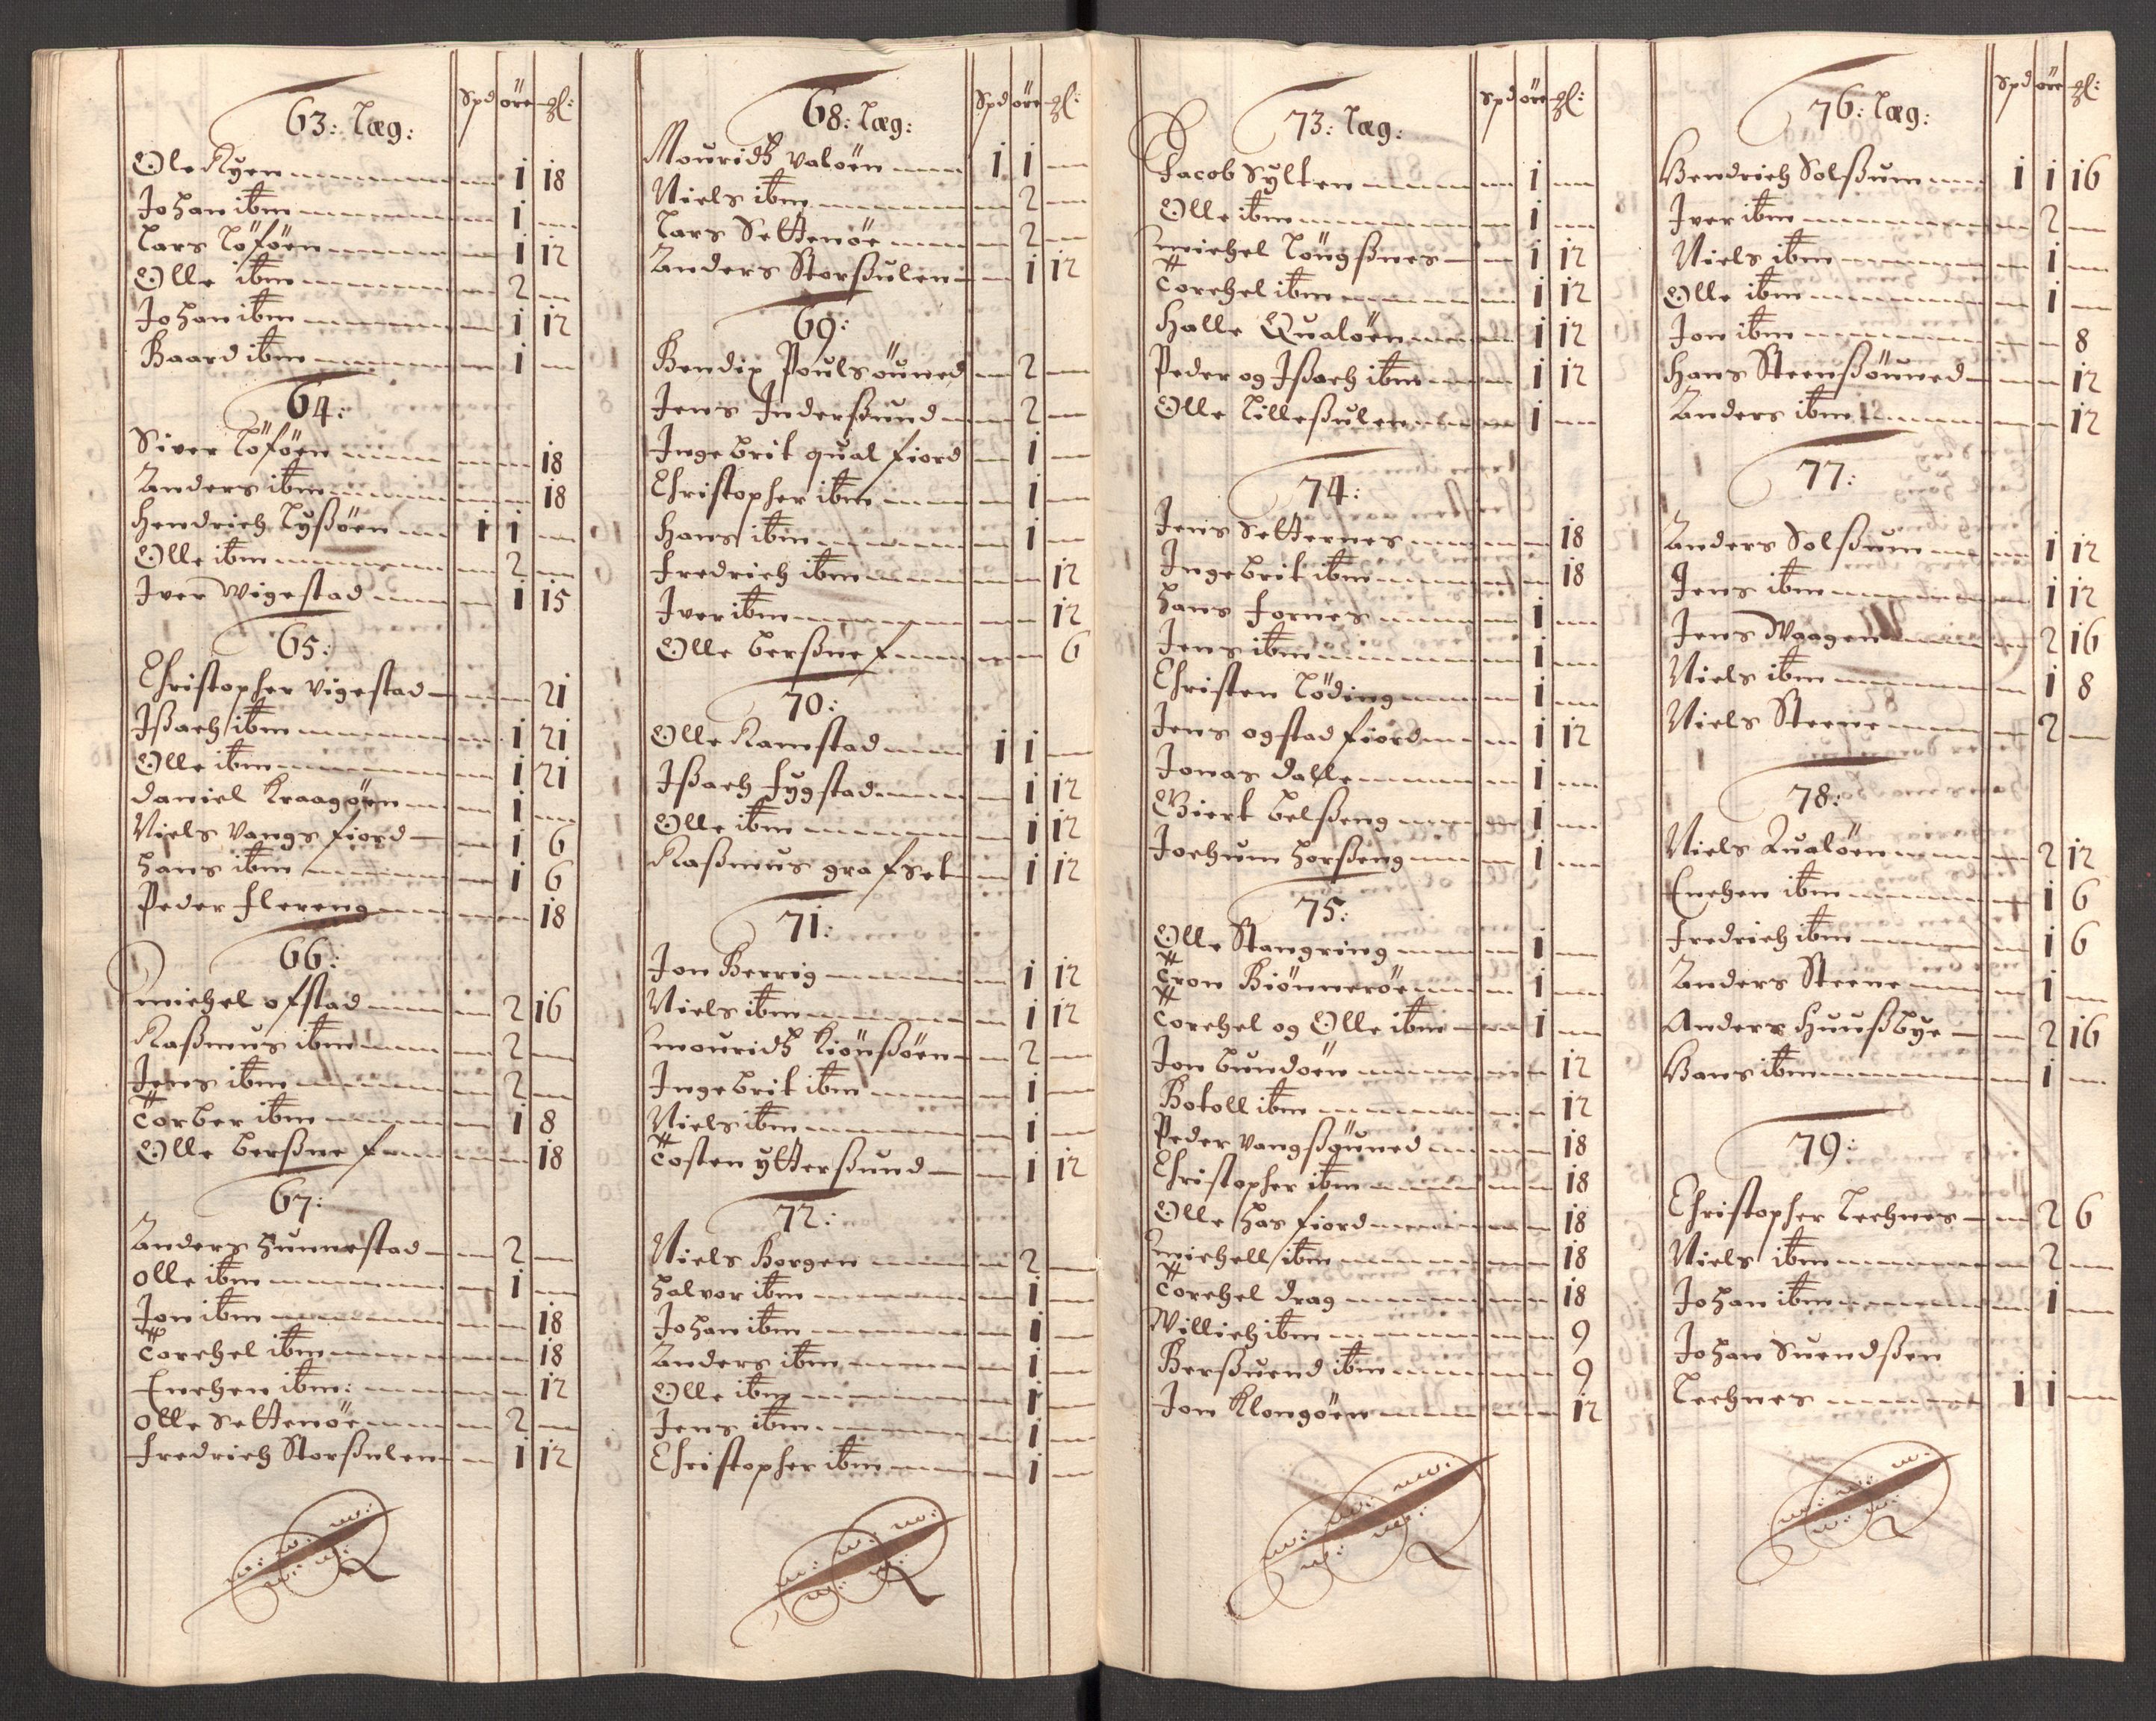 63: Læg: Spd öre ₰:
Ole Kyen 1 18
Johan ibm 1 —
Lars Löföen 1 12
Olle ibm 2 —
Johan ibm 1 12
Baard ibm 1 —
64:
Siver Löföen 18
Anders ibm 18
Hendrich Lyßöen 1 1 —
Olle ibm 2 —
Iver Wigestad 1 15
65:
Christopher Vigestad 21
Ißach ibm 1 21
Olle ibm 1 21
Daniel Kraagöen 1 —
Niels Vangs fiord 1 6
Hans ibm 1 6
Peder Flereng 18
66:
Michel ofstad 2 16
Raßmus ibm 2 —
Jens ibm 2 —
Torber ibm 1 8
Olle Berßnef 18
67:
Anders Hunnestad 2 —
Olle ibm 1 —
Jon ibm 18
Torchel ibm 18
Enchen ibm: 12
Olle Settenöe 2 —
Fredrich Storßulen 1 12
68: Læg: Spd öre ₰:
Mouridtz Valöen 1 1 —
Niels ibm 2 —
Lars Settenöe 2 —
Anders Storßulen 1 12
69:
Bendix Poulsöuned 2 —
Jens Inderßund 2 —
Ingebrit qual fiord 1 —
Christopher ibm 1 —
Hans ibm 1 —
Fredrich ibm 12
Iver ibm 12
Olle Berßnef 6
70:
Olle Ramstad 1 1 —
Ißach Fygstad 1 12
Olle ibm 1 12
Raßmus grafset 1 12
71:
Jon Berrig 1 12
Niels ibm 1 12
Mouridtz Kiönßöen 2 —
Ingebrit ibm 1 —
Niels ibm 1 —
Tosten ytterßund 1 12
72:
Niels Borgen 2 —
Halvor ibm 1 —
Johan ibm 1 —
Anders ibm 1 —
Olle ibm 1 —
Jens ibm 1 —
Christopher ibm 1 —
73: Læg: Spd öre ₰:
Jacob Sylten 1 —
Olle ibm 1 —
Michel Löngßnes 1 12
Torchel ibm 1 12
Halle Qualöen 1 12
Peder og Ißach ibm 1 12
Olle Lilleßulen 1 —
74:
Jens Setternes 18
Ingebrit ibm 18
Hans Fornes 1 —
Jens ibm 1 —
Christen Löding 1 —
Jens ogstad fiord 1 12
Jonas Dalle 1 —
Giert Belßeng 1 —
Jochum Horßeng 1 —
75:
Olle Stangring 1 —
Tron Biönneröe 1 —
Torchel og Olle ibm 1 —
Jon Bundöen 12
Botoll ibm 12
Peder Vangßöuned 18
Christopher ibm 18
Olle Has fiord 18
Michell ibm 18
Torchel Drag 18
Willich ibm 9
Berßuend ibm 9
Jon Klongöen 12
76: Læg: Spd öre ₰:
Hendrich Solßum 1 1 16
Iver ibm 2 —
Niels ibm 1 —
Olle ibm 1 —
Jon ibm 8
Hans Steenßöuned 12
Anders ibm 12
77:
Anders Solßum 1 12
Jens ibm 1 12
Jens Waagen 2 16
Niels ibm 1 8
Niels Steene 2 —
78:
Niels Qualöen 2 12
Enchen ibm 1 6
Fredrich ibm 1 6
Anders Steene 1 —
Anders Huußbye 2 16
Hans ibm 1 —
79:
Christopher Lechnes 2 6
Niels ibm 2 —
Johan ibm 1 —
Johan Suendßen
Lechnes 1 1 —